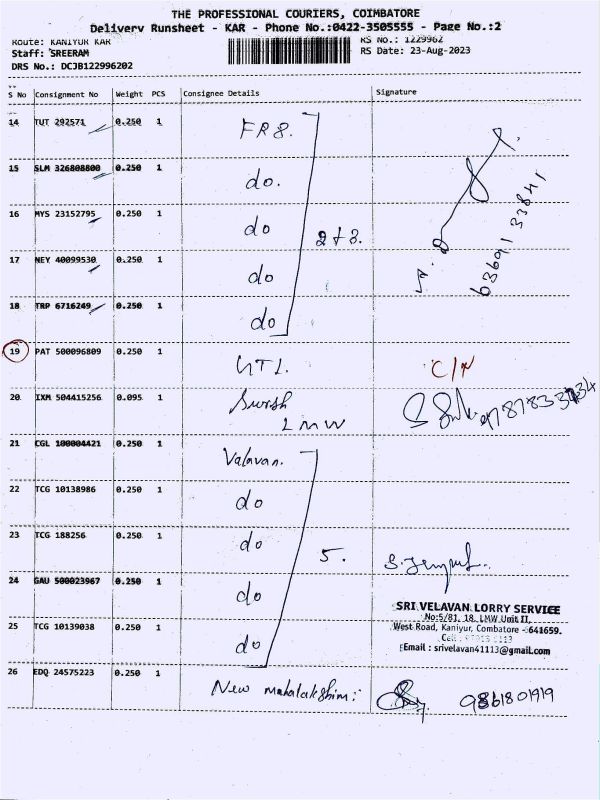 THE PROFESSIONAL COURIERS, COIMBATORE
Delivery Runsheet - KAR - Phone No.:0422-3505555 - Page No.:2
Route: KANIYUR KAR
RS No.: 1229962
Staff: SREERAM
RS Date: 23-Aug-2023
DRS No.: DCJB122996202
S No Consignment No Weight PCS Consignee Details Signature
14 TUT 292571 0.250 1 FR8.
15 SLM 326808800 0.250 1 do.
16 MYS 23152795 0.250 1 do
17 NEY 40099530 0.250 1 do
18 TRP 6716249 0.250 1 do
63691 33841
19 PAT 500096809 0.250 1 C/N
20 IXM 504415256 0.095 1 LMW
21 CGL 100004421 0.250 1 Valavan.
22 TCG 10138986 0.250 1 do
23 TCG 188256 0.250 1 do 5.
24 GAU 500023967 0.250 1 do
25 TCG 10139038 0.250 1 do
SRI VELAVAN LORRY SERVICE
No:5/81, 18, LMW Unit II,
West Road, Kaniyur, Combatore - 641659.
Cell :
Email : srivelavan41113@gmail.com
26 EDQ 24575223 0.250 1 New mahalakshimi